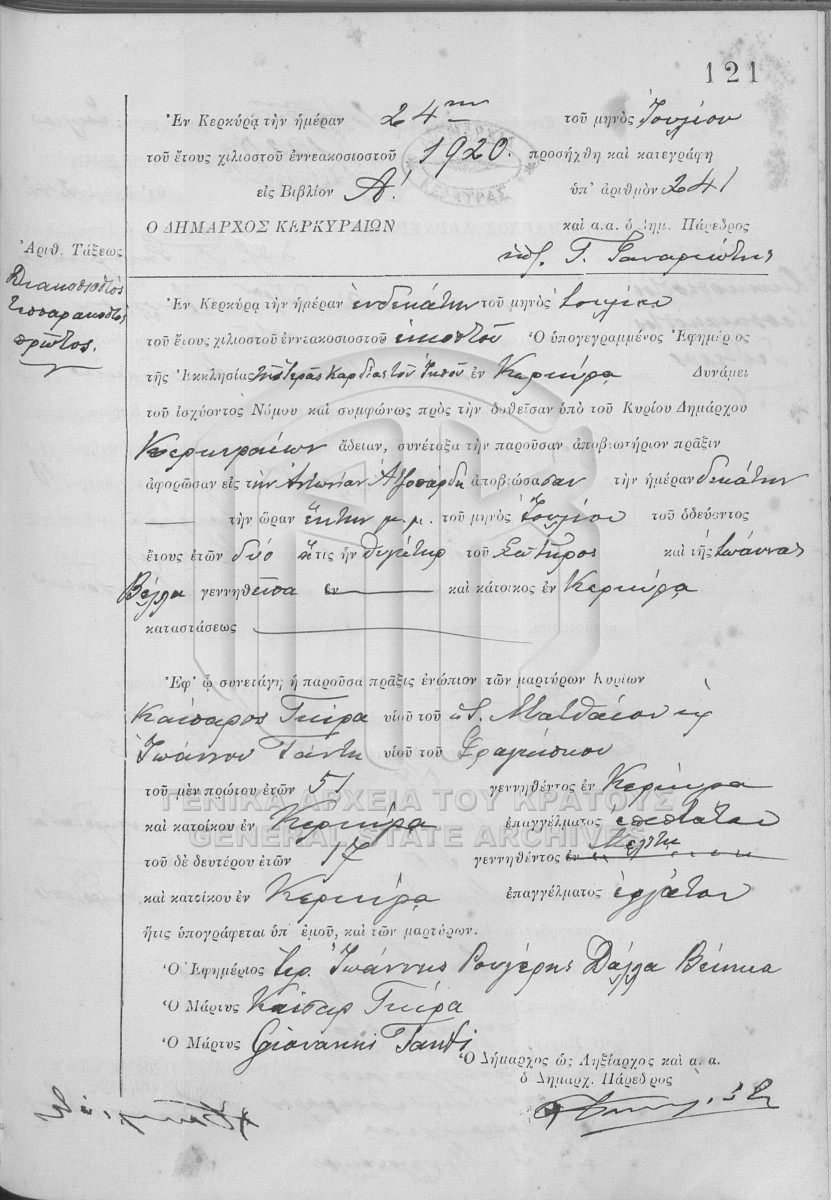 121
Ἐν Κερκύρᾳ τὴν ἡμέραν 24ην τοῦ μηνὸς Ἰουλίου
τοῦ ἔτους χιλιοστοῦ ἐννεακοσιοστοῦ 1920. προσήχθη καὶ κατεγράφη
εἰς Βιβλίον Α! ὑπ' ἀριθμὸν 241
Ο ΔΗΜΑΡΧΟΣ ΚΕΡΚΥΡΑΙΩΝ καὶ α.α. ὁ Δημ. Πάρεδρος
Γ.
Ἀριθ. Τάξεως
Διακοσιοστὸς
τεσσαρακοστὸς
πρῶτος.
Ἐν Κερκύρᾳ τὴν ἡμέραν ἑνδεκάτην τοῦ μηνὸς Ἰουλίου
τοῦ ἔτους χιλιοστοῦ ἐννεακοσιοστοῦ εἰκοστοῦ Ὁ ὑπογεγραμμένος Ἐφημέριος
τῆς Ἐκκλησίας τῆς Ἱερᾶς Καρδίας τοῦ Ἰησοῦ ἐν Κερκύρᾳ Δυνάμει
τοῦ ἰσχύοντος Νόμου καὶ συμφώνως πρὸς τὴν δοθεῖσαν ὑπὸ τοῦ Κυρίου Δημάρχου
Κερκυραίων ἄδειαν, συνέταξα τὴν παροῦσαν ἀποβιωτήριον πρᾶξιν
ἀφορῶσαν εἰς τὴν Ἀντωνίαν Ἀζοπάρδη ἀποβιώσασαν τὴν ἡμέραν δεκάτην
τὴν ὥραν ἕκτην μ.μ. τοῦ μηνὸς Ἰουλίου τοῦ ὁδεύοντος
ἔτους ἐτῶν δύο ἥτις ἦν θυγάτηρ τοῦ Σωτῆρος καὶ τῆς Ἰωάννας
Βέλλα γεννηθεῖσα ἐν καὶ κάτοικος ἐν Κερκύρᾳ
καταστάσεως
Ἐφ' ᾧ συνετάγη ἡ παροῦσα πρᾶξις ἐνώπιον τῶν μαρτύρων Κυρίων
Καίσαρος Γκίρα υἱοῦ τοῦ Ματθαίου
Ἰωάννου Τάντη υἱοῦ τοῦ Φραγκίσκου
τοῦ μὲν πρώτου ἐτῶν 51 γεννηθέντος ἐν Κερκύρᾳ
καὶ κατοίκου ἐν Κερκύρᾳ ἐπαγγέλματος ἐπιστάτου
τοῦ δὲ δευτέρου ἐτῶν 17 γεννηθέντος ἐν Μελίτη
καὶ κατοίκου ἐν Κερκύρᾳ ἐπαγγέλματος ἐργάτου
ἥτις ὑπογράφεται ὑπ' ἐμοῦ, καὶ τῶν μαρτύρων.
Ὁ Ἐφημέριος Ἱερ. Ἰωάννης Ρουγέρης Δάλλα
Ὁ Μάρτυς Καῖσαρ Γκίρα
Ὁ Μάρτυς Giovanni Tanti
Ὁ Δήμαρχος ὡς Ληξίαρχος καὶ α. α.
ὁ Δημαρχ. Πάρεδρος
ΓΕΝΙΚΑ ΑΡΧΕΙΑ ΤΟΥ ΚΡΑΤΟΥΣ
GENERAL STATE ARCHIVES